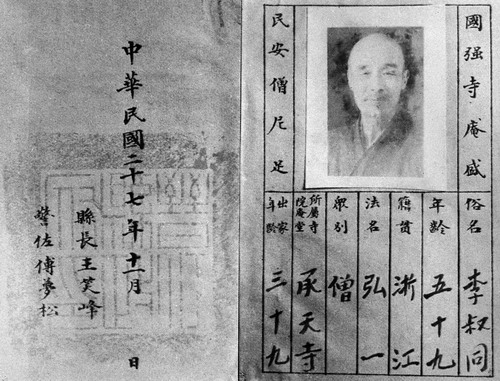 國强寺庵盛
民安僧尼足
俗名 李叔同
年齡 五十九
籍貫 浙江
法名 弘一
眾别 僧
所屬寺
院庵堂 承天寺
出家
年齡 三十九
中華民國二十七年十一月 日
縣長王笑峰
警佐傅夢松